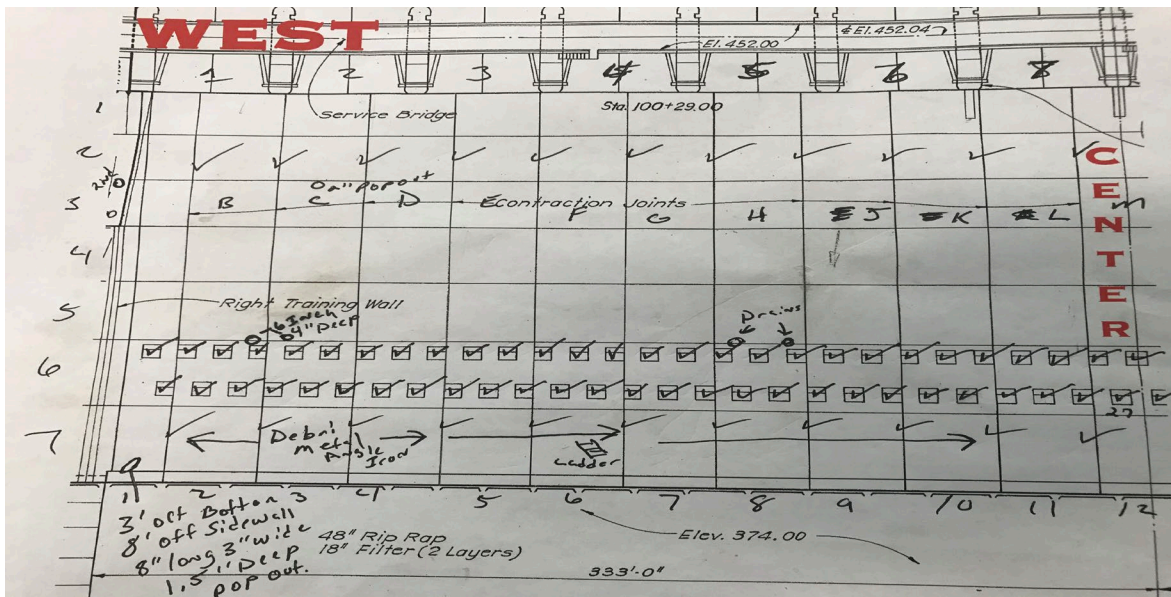 WEST
El. 452.00
¢ El. 452.04
1 2 3 4 5 6 8
Service Bridge
Sta. 100+29.00
1
2
2nd
C
E
N
T
E
R
0 a" pop out
3
B C D E contraction Joints
F G H J K L m
4
5
Right Training Wall
6 Inch
04" Deep
Drains
6
27
7
Debri
metal
Angle
Iron
Ladder
1 2 3 4 5 6 7 8 9 10 11 12
3' off Botton
8' off Sidewall
8" long 3" wide
1.5" Deep
pop out.
48" Rip Rap
18" Filter (2 Layers)
Elev. 374.00
333'-0"